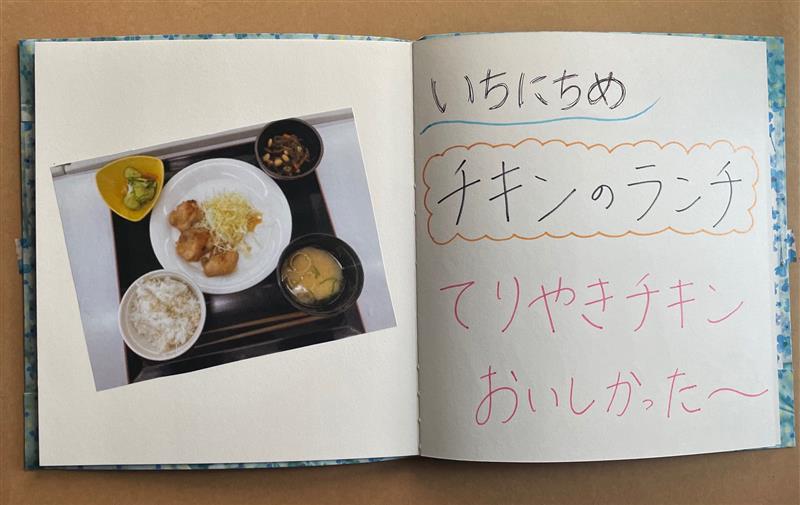 いちにちめ
チキンのランチ
てりやきチキン
おいしかった〜